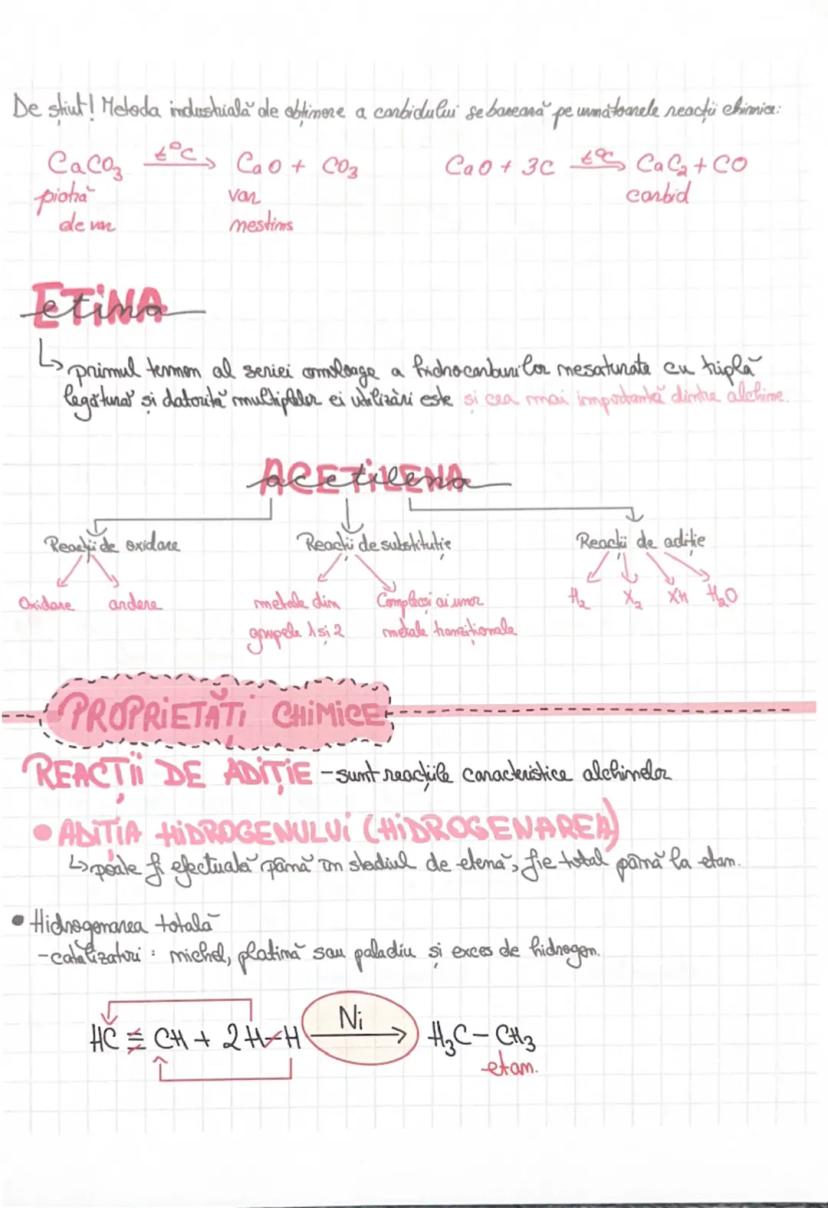 De știut! Metoda industrială de obținere a carbidului se bazează pe următoarele reacții chimice:
CaCO₃ t°C→ CaO + CO₃ CaO + 3C t°C→ CaC₂ + CO
piatră var carbid
de var nestins
ETINA
etina
↳ primul termen al seriei omoloage a hidrocarburilor nesaturate cu triplă
legătură și datorită multiplelor ei utilizări este și cea mai importantă dintre alchine.
ACETILENA
acetilena
Reacții de oxidare Reacții de substituție Reacții de adiție
Oxidare ardere metale din Complecși ai unor H₂ X₂ XH H₂O
grupele 1 și 2 metale tranziționale
PROPRIETĂȚI CHIMICE
REACȚII DE ADIȚIE - sunt reacțiile caracteristice alchinelor
• ADIȚIA HIDROGENULUI (HIDROGENAREA)
↳ poate fi efectuată până în stadiul de etenă, fie total până la etan.
• Hidrogenarea totală
- catalizatori: nichel, platină sau paladiu și exces de hidrogen.
HC ≡ CH + 2H-H Ni→ H₃C - CH₃
etan.